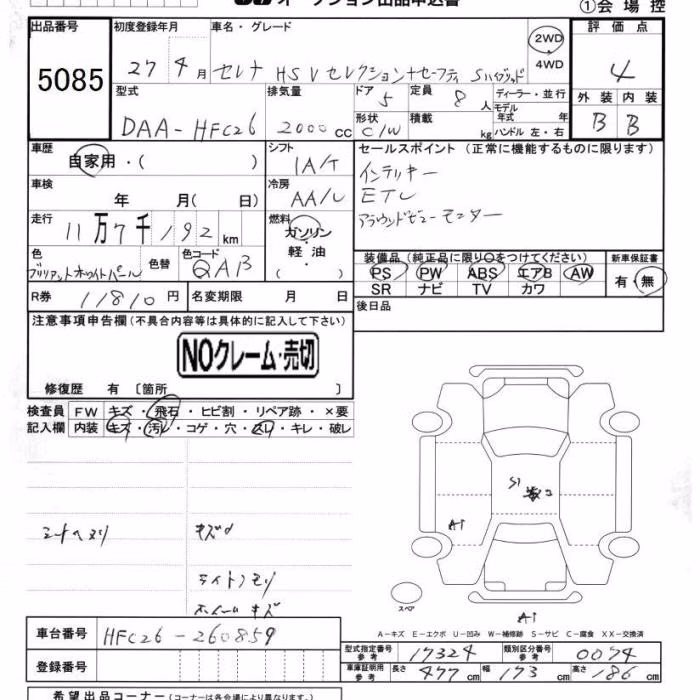 オークション出品申込書
①会場控
出品番号
5085
初度登録年月
27年4月
車名・グレード
セレナ HSVセレクション+セーフティ Sハイブリッド
2WD
4WD
評価点
4
型式
DAA-HFC26
排気量
2000cc
ドア
5
形状
C/W
定員
8人
積載
kg
ディーラー・並行
モデル年式
年
ハンドル 左・右
外装
B
内装
B
車歴
自家用・( )
シフト
IA/T
セールスポイント (正常に機能するものに限ります)
インテリキー
ETC
アラウンドビューモニター
車検
年 月( 日)
冷房
AA/C
走行
11万7千192km
燃料
ガソリン
軽油・
色
ブリリアントホワイトパール
色替
色コード
QAB
装備品 (純正品に限り○をつけてください)
PS PW ABS エアB AW
SR ナビ TV カワ
新車保証書
有・無
R券
11810円
名変期限
月 日
後日品
注意事項申告欄 (不具合内容等は具体的に記入して下さい)
NOクレーム・売切
修復歴 有 〔箇所 〕
検査員記入欄
FW キズ・飛石・ヒビ割・リペア跡・×要
内装 キズ・汚れ・コゲ・穴・スレ・キレ・破レ
シートヘタリ
キズ
ライトクモリ
ホイールキズ
S1
A1
A1
スペア
A-キズ E-エクボ U-凹み W-補修跡 S-サビ C-腐食 XX-交換済
車台番号
HFC26-260859
登録番号
型式指定番号
参考
17324
類別区分番号
参考
0074
車庫証明用
参考
長さ 477cm
幅 173cm
高さ 186cm
希望出品コーナー (コーナーは各会場により異なります)